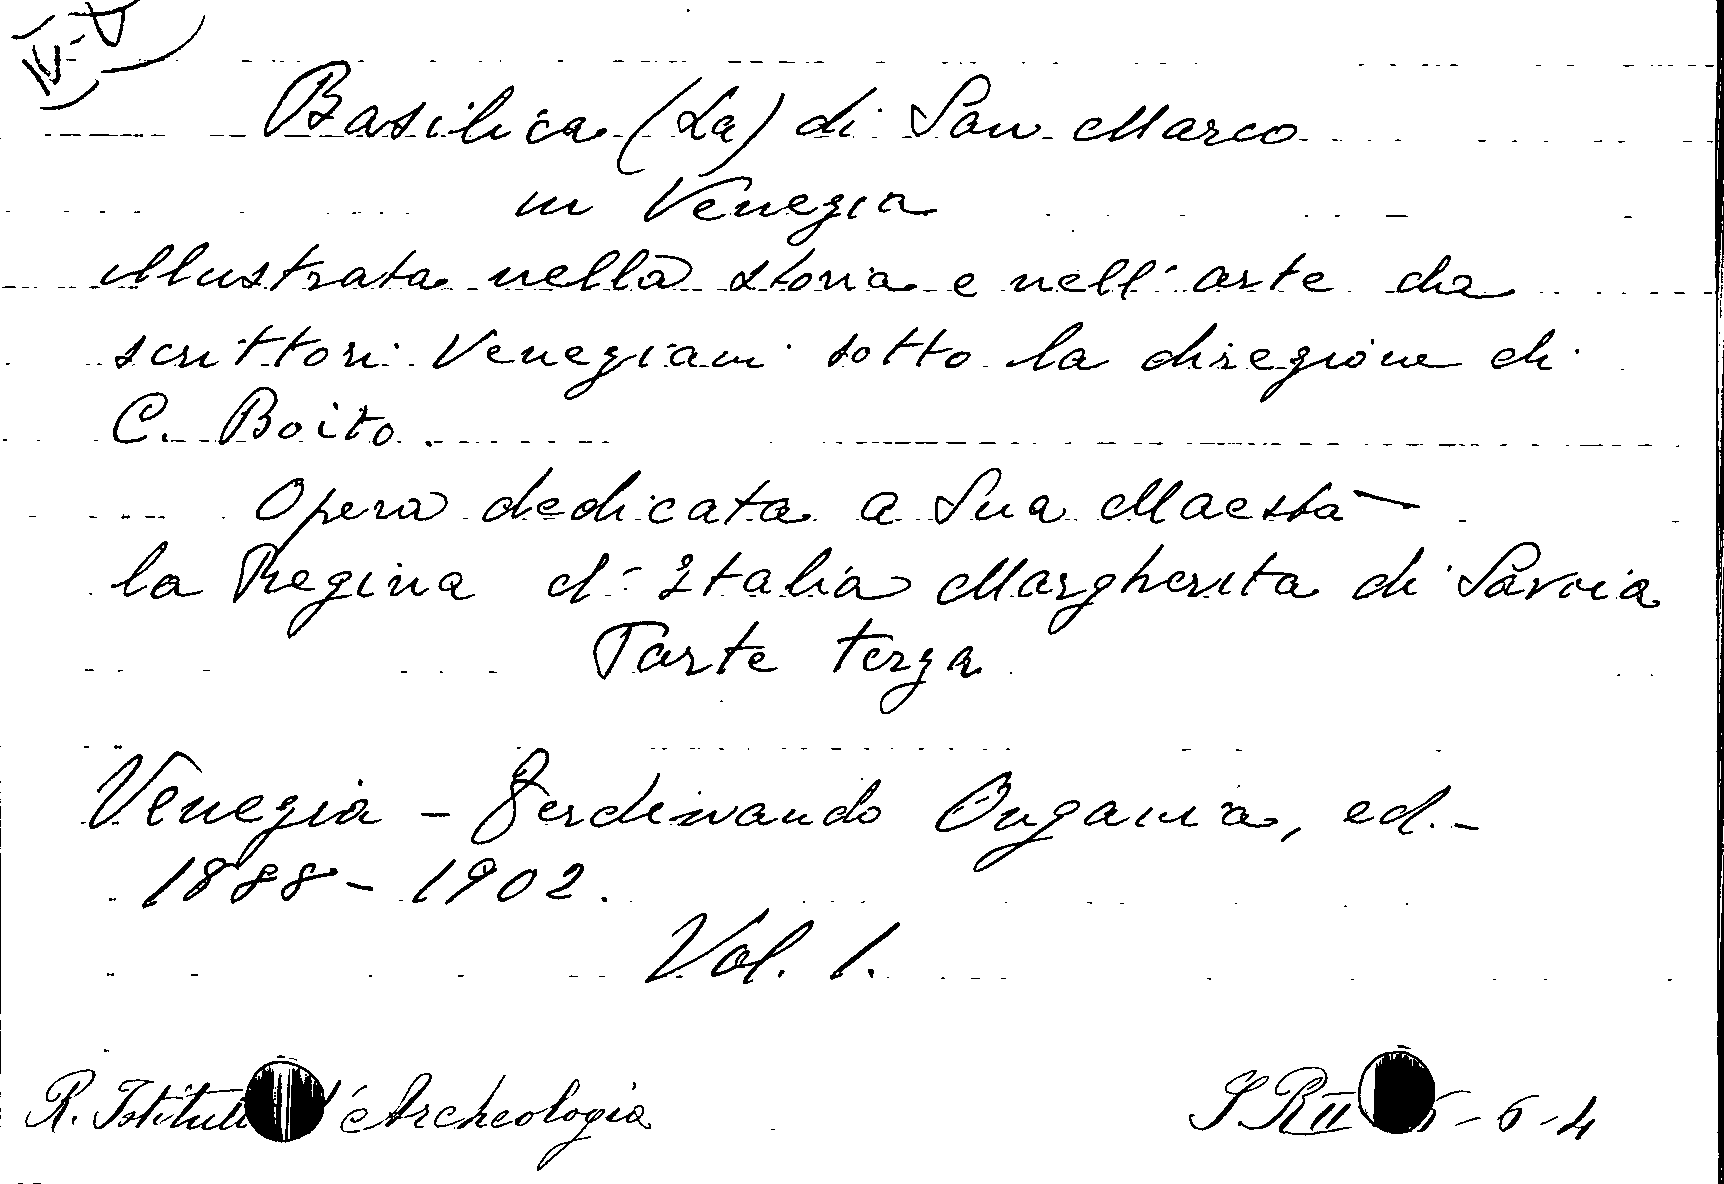 IV-V
Basilica (La) di San Marco
in Venezia
illustrata nella storia e nell'arte da
scrittori Veneziani sotto la direzione di
C. Boito.
Opera dedicata a Sua Maestà
la Regina d'Italia Margherita di Savoia
Parte terza
Venezia - Ferdinando Ongania, ed.-
1888-1902.
Vol. 1.
R. Archeologia
-6-4